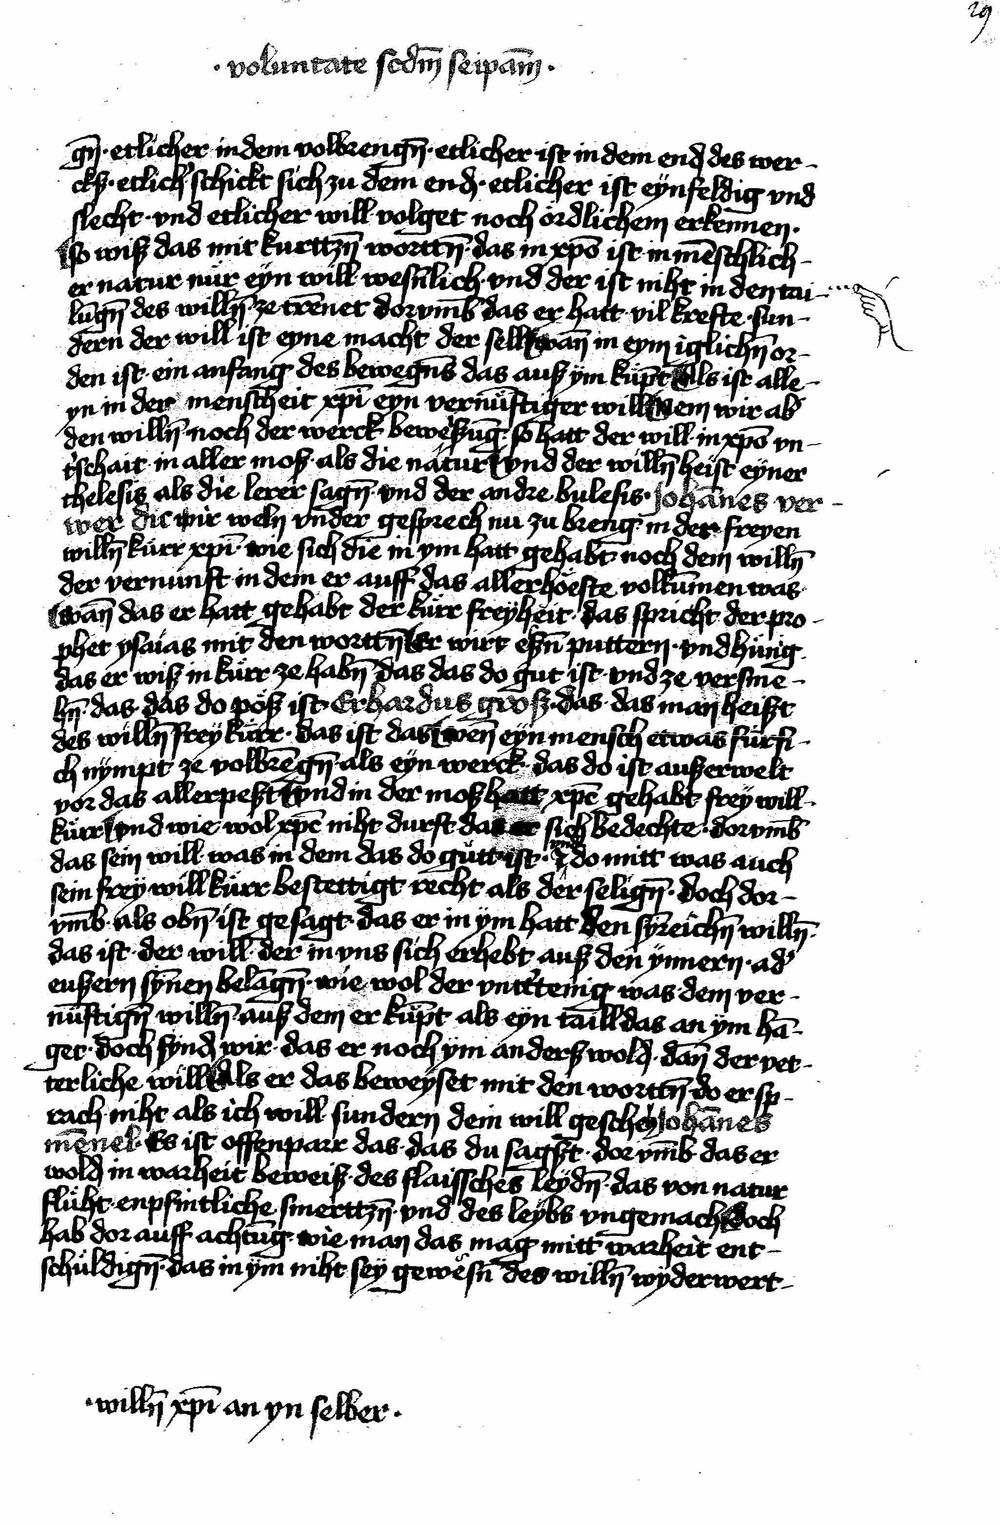 29
· voluntate scdm̄ seipam̄ ·
gn̄ · etlicher in dem volbrengn̄ · etlicher ist in dem end des wer-
cks · etlich' schickt sich zu dem end · etlicher ist eynfeldig vnd
slecht · vnd etlicher will volget noch ördlichem erkennen ·
so wiß das mit kurttzn̄ worttn̄ · das in xp̄o ist in mēschlich-
er natur nür eyn will wesn̄lich · vnd der ist niht in den tai-
lūgn̄ des willn̄ ze trēnet dorvmb das er hatt vil krefte · sun-
dern der will ist eyne macht der sell wan̄ in eym iglichn̄ or-
den ist ein anfang des bewegn̄s das auß ym küp̄t Als ist alle-
yn in der menscheit xp̄i eyn vernüftiger will Nem wir ab'
den willn̄ noch der werck beweßūg so hatt der will in xp̄o vn-
t'schait in aller moß als die nätur vnd der willn̄ heist eyner
thelesis als die lerer sagn̄ · vnd der andre bulesis · Johānes ver-
wer dic wir weln vnder gesprech nu zu breng in der freyen
willn̄ kürr xp̄i · wie sich die in ym hatt gehabt noch dem willn̄
der vernunft in dem er auff das allerhöeste volkūmen was ·
wan̄ das er hatt gehabt der kürr freyheit · das spricht der pro-
phet ysaias mit den worttn̄ Er wirt eßn̄ puttern · vnd hünig
das er wiß in kürr ze habn̄ das das do gut ist · vnd ze versme-
hn̄ · das · das do pöß ist · Erhardus groß · das · das man heißt
des willn̄ frey kürr · das ist das wen̄ eyn mensch etwas fürsi-
ch nympt ze volbrēngn̄ · als eyn werck · das do ist außerwelt
vor das allerpeßt vnd in der moß hatt xp̄c gehabt frey will-
kürr vnd wie wol xp̄c niht durft das er sich bedechte · dorvmb
das sein will was in dem das do gütt ist · vnd do mitt was auch
sein frey willkürr bestettigt recht als der selign̄ · doch dor-
vmb als obn̄ ist gesagt · das er in ym hatt den syn̄reichn̄ willn̄ ·
das ist · der will · der in vns sich erhebt auß den ynnern · ad'
eußern syn̄en belāgn̄ · wie wol der vnt'tenig was dem ver-
nüftign̄ willn̄ · auß dem er küp̄t als eyn taill das an ym hā-
get · doch synd wir · das er noch ym anderß wold · dan̄ der vet-
terliche will Als er das beweyset mit den worttn̄ do er sp-
rach niht als ich will sundern dem will gescheh Johānes
mēnel · Es ist offenparr das · das du sagst · dorvmb das er
wold in warheit beweiß · des flaissches leydn̄ · das von natur
flüht · enpfintliche smerttzn̄ · vnd des leybs vngemach doch
hab dor auff achtūg · wie man das mag mitt warheit ent-
schüldign̄ · das in ym niht sey gewesn̄ des willn̄ wyderwert-
· willn̄ xp̄i an yn selber ·